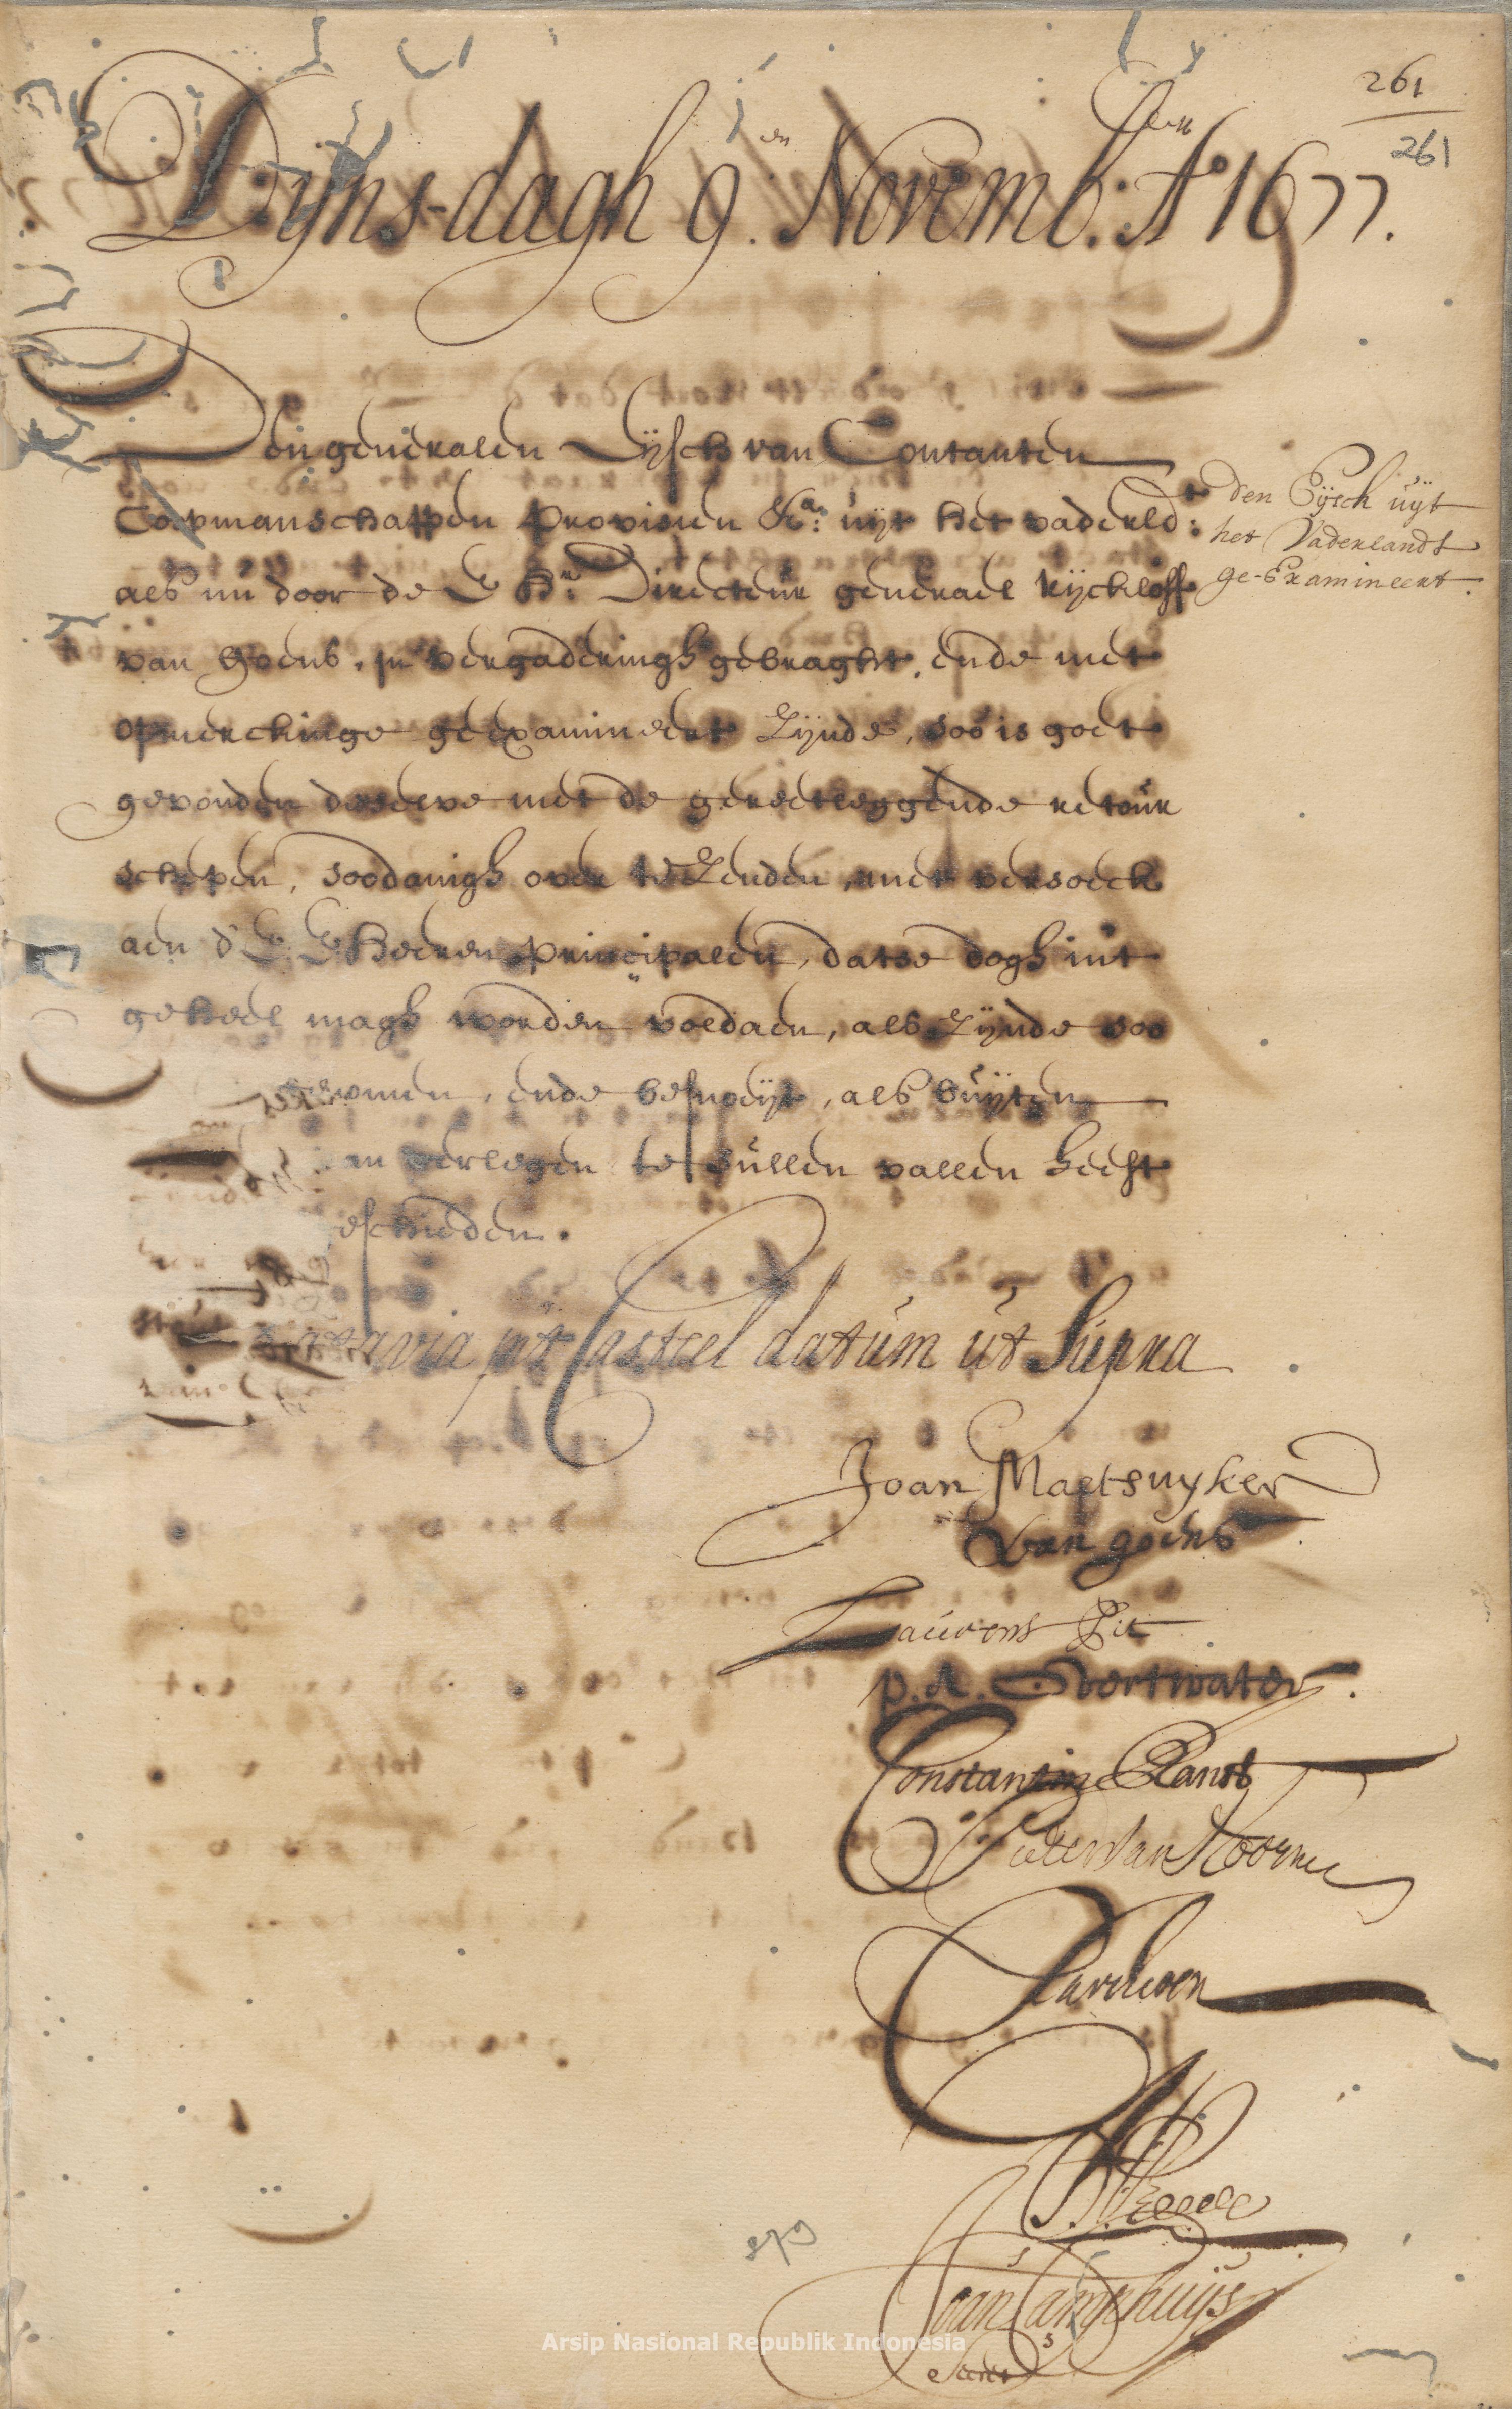 261
261
Dijns-dagh 9.en Novemb: Ao 1677.
Den generalen Eijsch van Contanten
Coopmanschappen provisien &a: uijt het vaderld:t
als nu door de E Hr: Directeur generael Rijckloff
van Goens, in vergaderingh gebraght, ende met
opmerckinge geexamineert Zijnde, soo is goet
gevonden deselve met de gereetleggende retour
schepen, soodanigh over te Zenden, met versoeck
aen d' E. E Heeren principalen, datse dogh int
geheel magh worden voldaen, als Zijnde soo
ende besnoeijt, als buijten
verlegen te sullen vallen heeft
den Eijsch uijt
het Vaderlandt
ge-Examineert.
Batavia int Casteel datum ut Supra
Joan Maetsuyker
Van goens
Laurens Pit
P. A. Overtwater.
Constantin Ranst
Pieter Van Hoorn
Joan Camphuijs
Secrts
Arsip Nasional Republik Indonesia